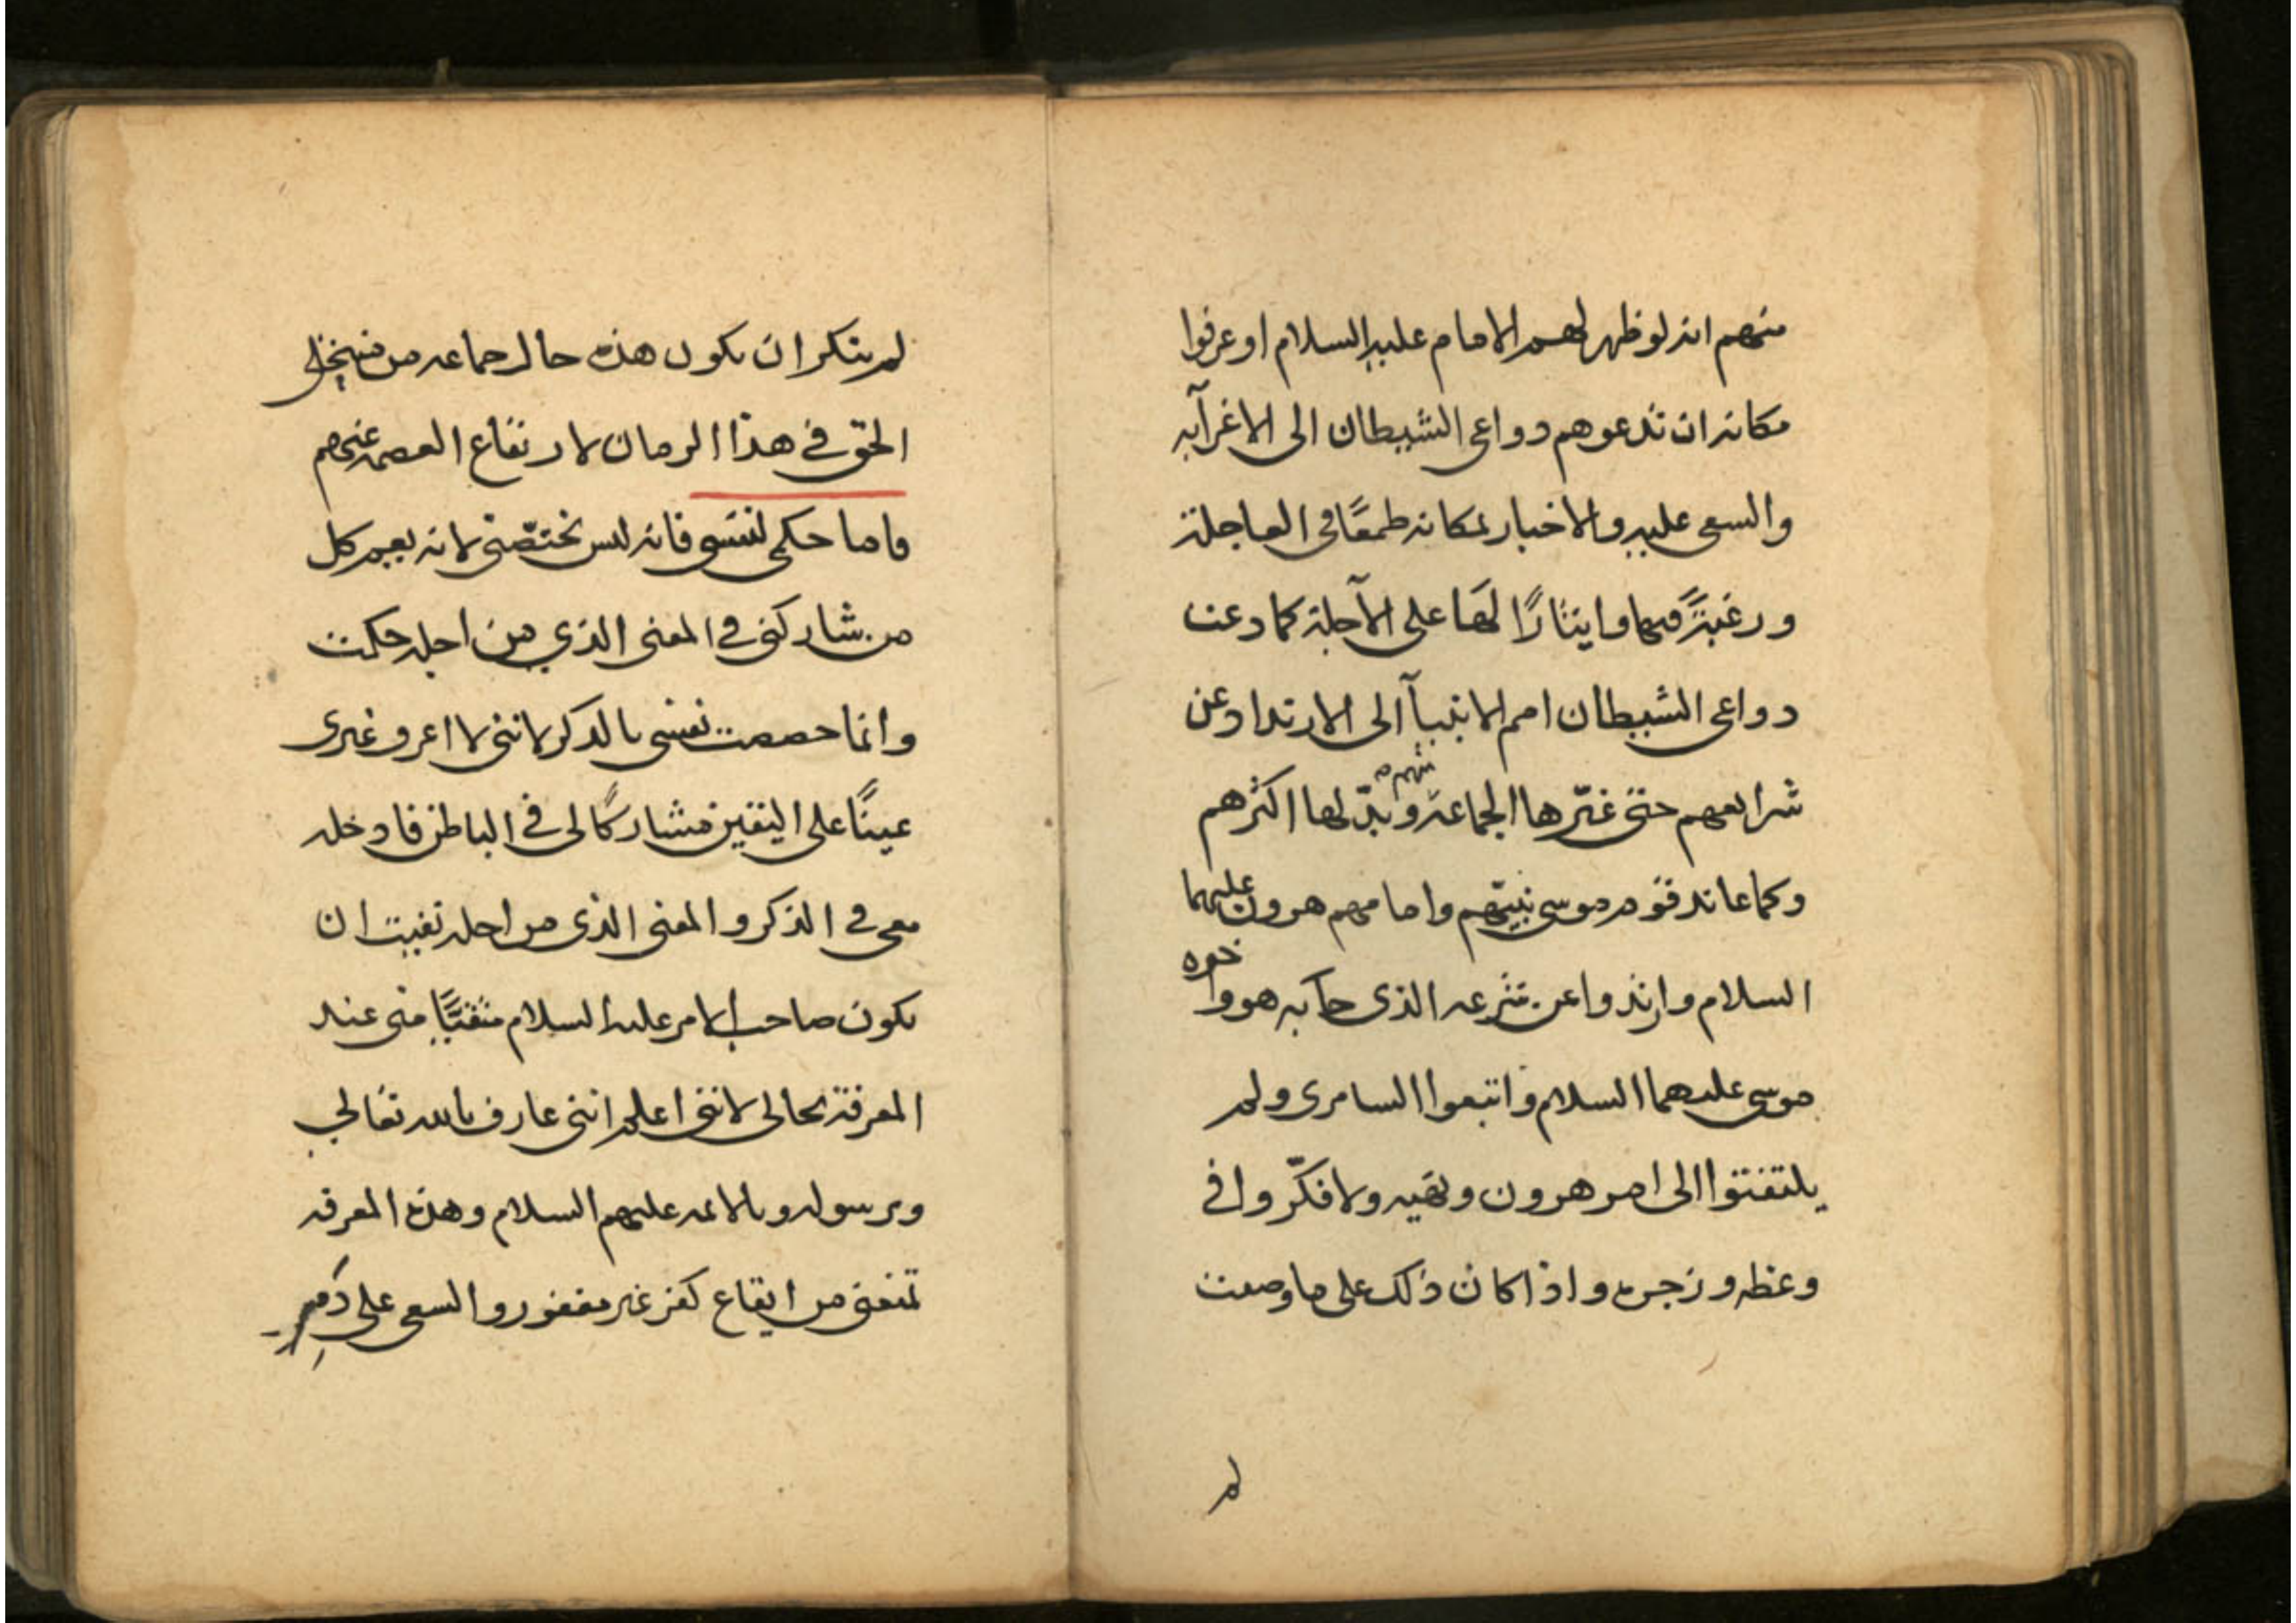 منهم انه لو ظهر لهم الامام عليه السلام او عرفوا
مكانه ان تدعوهم دواعى الشيطان الى الاغرآ به
والسعى عليه والاخبار بمكانه طمعًا فى العاجلة
ورغبةً فيها وايثارًا لها على الآجلة كما دعت
دواعى الشيطان امم الانبيآ الى الارتداد عن
شرايعهم حتى غيّرها الجماعة منهم وبدّلها اكثرهم
وكما عاند قوم موسى نبيّهم وامامهم هرون عليهما
السلام وارتدوا عن شرعه الذى جآ به هو واخوه
موسى عليهما السلام واتبعوا السامرى ولم
يلتفتوا الى امر هرون ونهيه ولا فكّروا فى
وعظه وزجره واذا كان ذلك على ما وصفت
لم
لم ينكر ان يكون هذه حال جماعه من
الحق في هذا الزمان لارتفاع العصمه عنهم
فاما حكمى لنفسى فانه ليس يختصّنى لانه يعم كل
من شاركنى في المعنى الذي من اجله حكمت
وانما خصصت نفسى بالذكر لاننى لا اعرف غيرى
عينًا على اليقين مشاركًا لى في الباطن فادخله
معى في الذكر والمعنى الذى من اجله نفيت ان
يكون صاحب الامر عليه السلام متقيًا منى عند
المعرفة بحالى لاننى اعلم اننى عارف بالله تعالى
وبرسوله وبالائمه عليهم السلام وهذه المعرفه
تمنعنى من ايقاع كفر غير مغفور والسعى على دمه